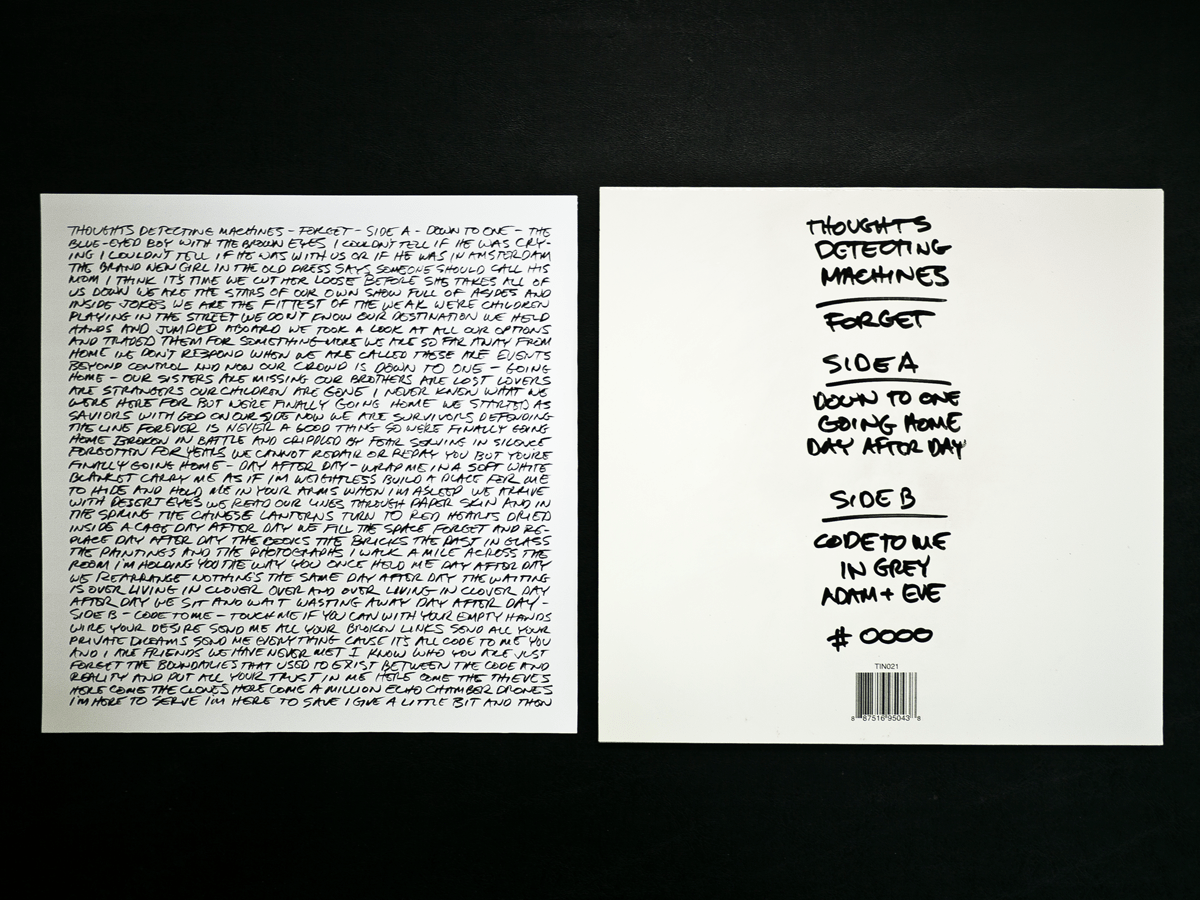 THOUGHTS DETECTING MACHINES - FORGET - SIDE A - DOWN TO ONE - THE
BLUE-EYED BOY WITH THE BROWN EYES I COULDN'T TELL IF HE WAS CRY-
ING I COULDN'T TELL IF HE WAS WITH US OR IF HE WAS IN AMSTERDAM
THE BRAND NEW GIRL IN THE OLD DRESS SAYS SOMEONE SHOULD CALL HIS
MOM I THINK IT'S TIME WE CUT HER LOOSE BEFORE SHE TAKES ALL OF
US DOWN WE ARE THE STARS OF OUR OWN SHOW FULL OF ASIDES AND
INSIDE JOKES WE ARE THE FITTEST OF THE WEAK WE'RE CHILDREN
PLAYING IN THE STREET WE DON'T KNOW OUR DESTINATION WE HELD
HANDS AND JUMPED ABOARD WE TOOK A LOOK AT ALL OUR OPTIONS
AND TRADED THEM FOR SOMETHING MORE WE ARE SO FAR AWAY FROM
HOME WE DON'T RESPOND WHEN WE ARE CALLED THESE ARE EVENTS
BEYOND CONTROL AND NOW OUR CROWD IS DOWN TO ONE - GOING
HOME - OUR SISTERS ARE MISSING OUR BROTHERS ARE LOST LOVERS
ARE STRANGERS OUR CHILDREN ARE GONE I NEVER KNEW WHAT WE
WERE HERE FOR BUT WE'RE FINALLY GOING HOME WE STARTED AS
SAVIORS WITH GOD ON OUR SIDE NOW WE ARE SURVIVORS DEFENDING
THE LINE FOREVER IS NEVER A GOOD THING SO WE'RE FINALLY GOING
HOME BROKEN IN BATTLE AND CRIPPLED BY FEAR SERVING IN SILENCE
FORGOTTEN FOR YEARS WE CANNOT REPAIR OR REPAY YOU BUT YOU'RE
FINALLY GOING HOME - DAY AFTER DAY - WRAP ME IN A SOFT WHITE
BLANKET CARRY ME AS IF I'M WEIGHTLESS BUILD A PLACE FOR ME
TO HIDE AND HOLD ME IN YOUR ARMS WHEN I'M ASLEEP WE ARRIVE
WITH DESERT EYES WE READ OUR LINES THROUGH PAPER SKIN AND IN
THE SPRING THE CHINESE LANTERNS TURN TO RED HEARTS DRIED
INSIDE A CAGE DAY AFTER DAY WE FILL THE SPACE FORGET AND RE-
PLACE DAY AFTER DAY THE BOOKS THE BRICKS THE PAST IN GLASS
THE PAINTINGS AND THE PHOTOGRAPHS I WALK A MILE ACROSS THE
ROOM I'M HOLDING YOU THE WAY YOU ONCE HELD ME DAY AFTER DAY
WE REARRANGE NOTHING'S THE SAME DAY AFTER DAY THE WAITING
IS OVER LIVING IN CLOVER OVER AND OVER LIVING IN CLOVER DAY
AFTER DAY WE SIT AND WAIT WASTING AWAY DAY AFTER DAY -
SIDE B - CODE TO ME - TOUCH ME IF YOU CAN WITH YOUR EMPTY HANDS
WIRE YOUR DESIRE SEND ME ALL YOUR BROKEN LINKS SEND ALL YOUR
PRIVATE DREAMS SEND ME EVERYTHING CAUSE IT'S ALL CODE TO ME YOU
AND I ARE FRIENDS WE HAVE NEVER MET I KNOW WHO YOU ARE JUST
FORGET THE BOUNDARIES THAT USED TO EXIST BETWEEN THE CODE AND
REALITY AND PUT ALL YOUR TRUST IN ME HERE COME THE THIEVES
HERE COME THE CLONES HERE COME A MILLION ECHO CHAMBER DRONES
I'M HERE TO SERVE I'M HERE TO SAVE I GIVE A LITTLE BIT AND THEN
THOUGHTS
DETECTING
MACHINES
FORGET
SIDE A
DOWN TO ONE
GOING HOME
DAY AFTER DAY
SIDE B
CODE TO ME
IN GREY
ADAM + EVE
# 0000
TIN021
8 87516 95043 8